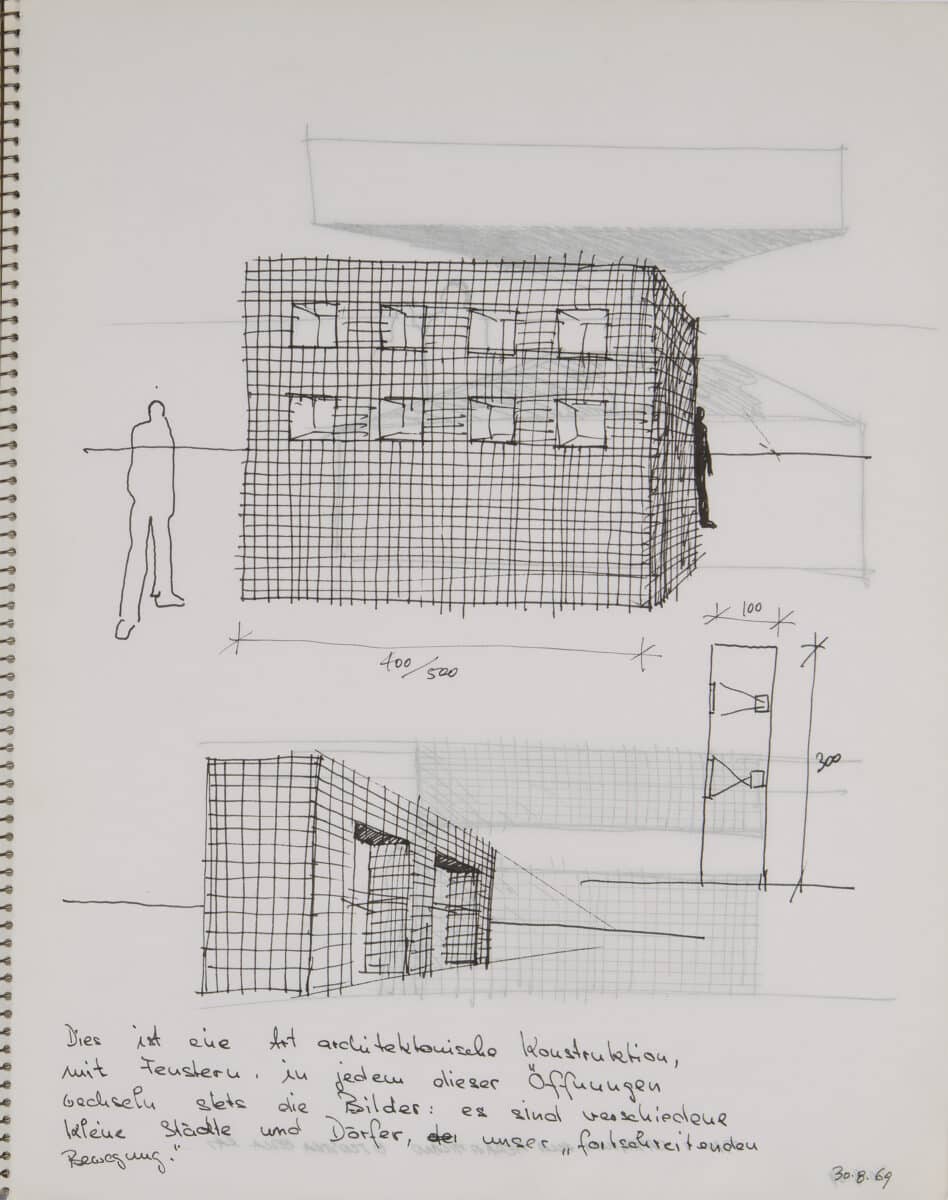 100
400/500
300
Dies ist eine Art architektonische Konstruktion,
mit Fenstern. in jedem dieser Öffnungen
wechseln stets die Bilder: es sind verschiedene
kleine Städte und Dörfer, unser „fortschreitenden
Bewegung."
30.8.69